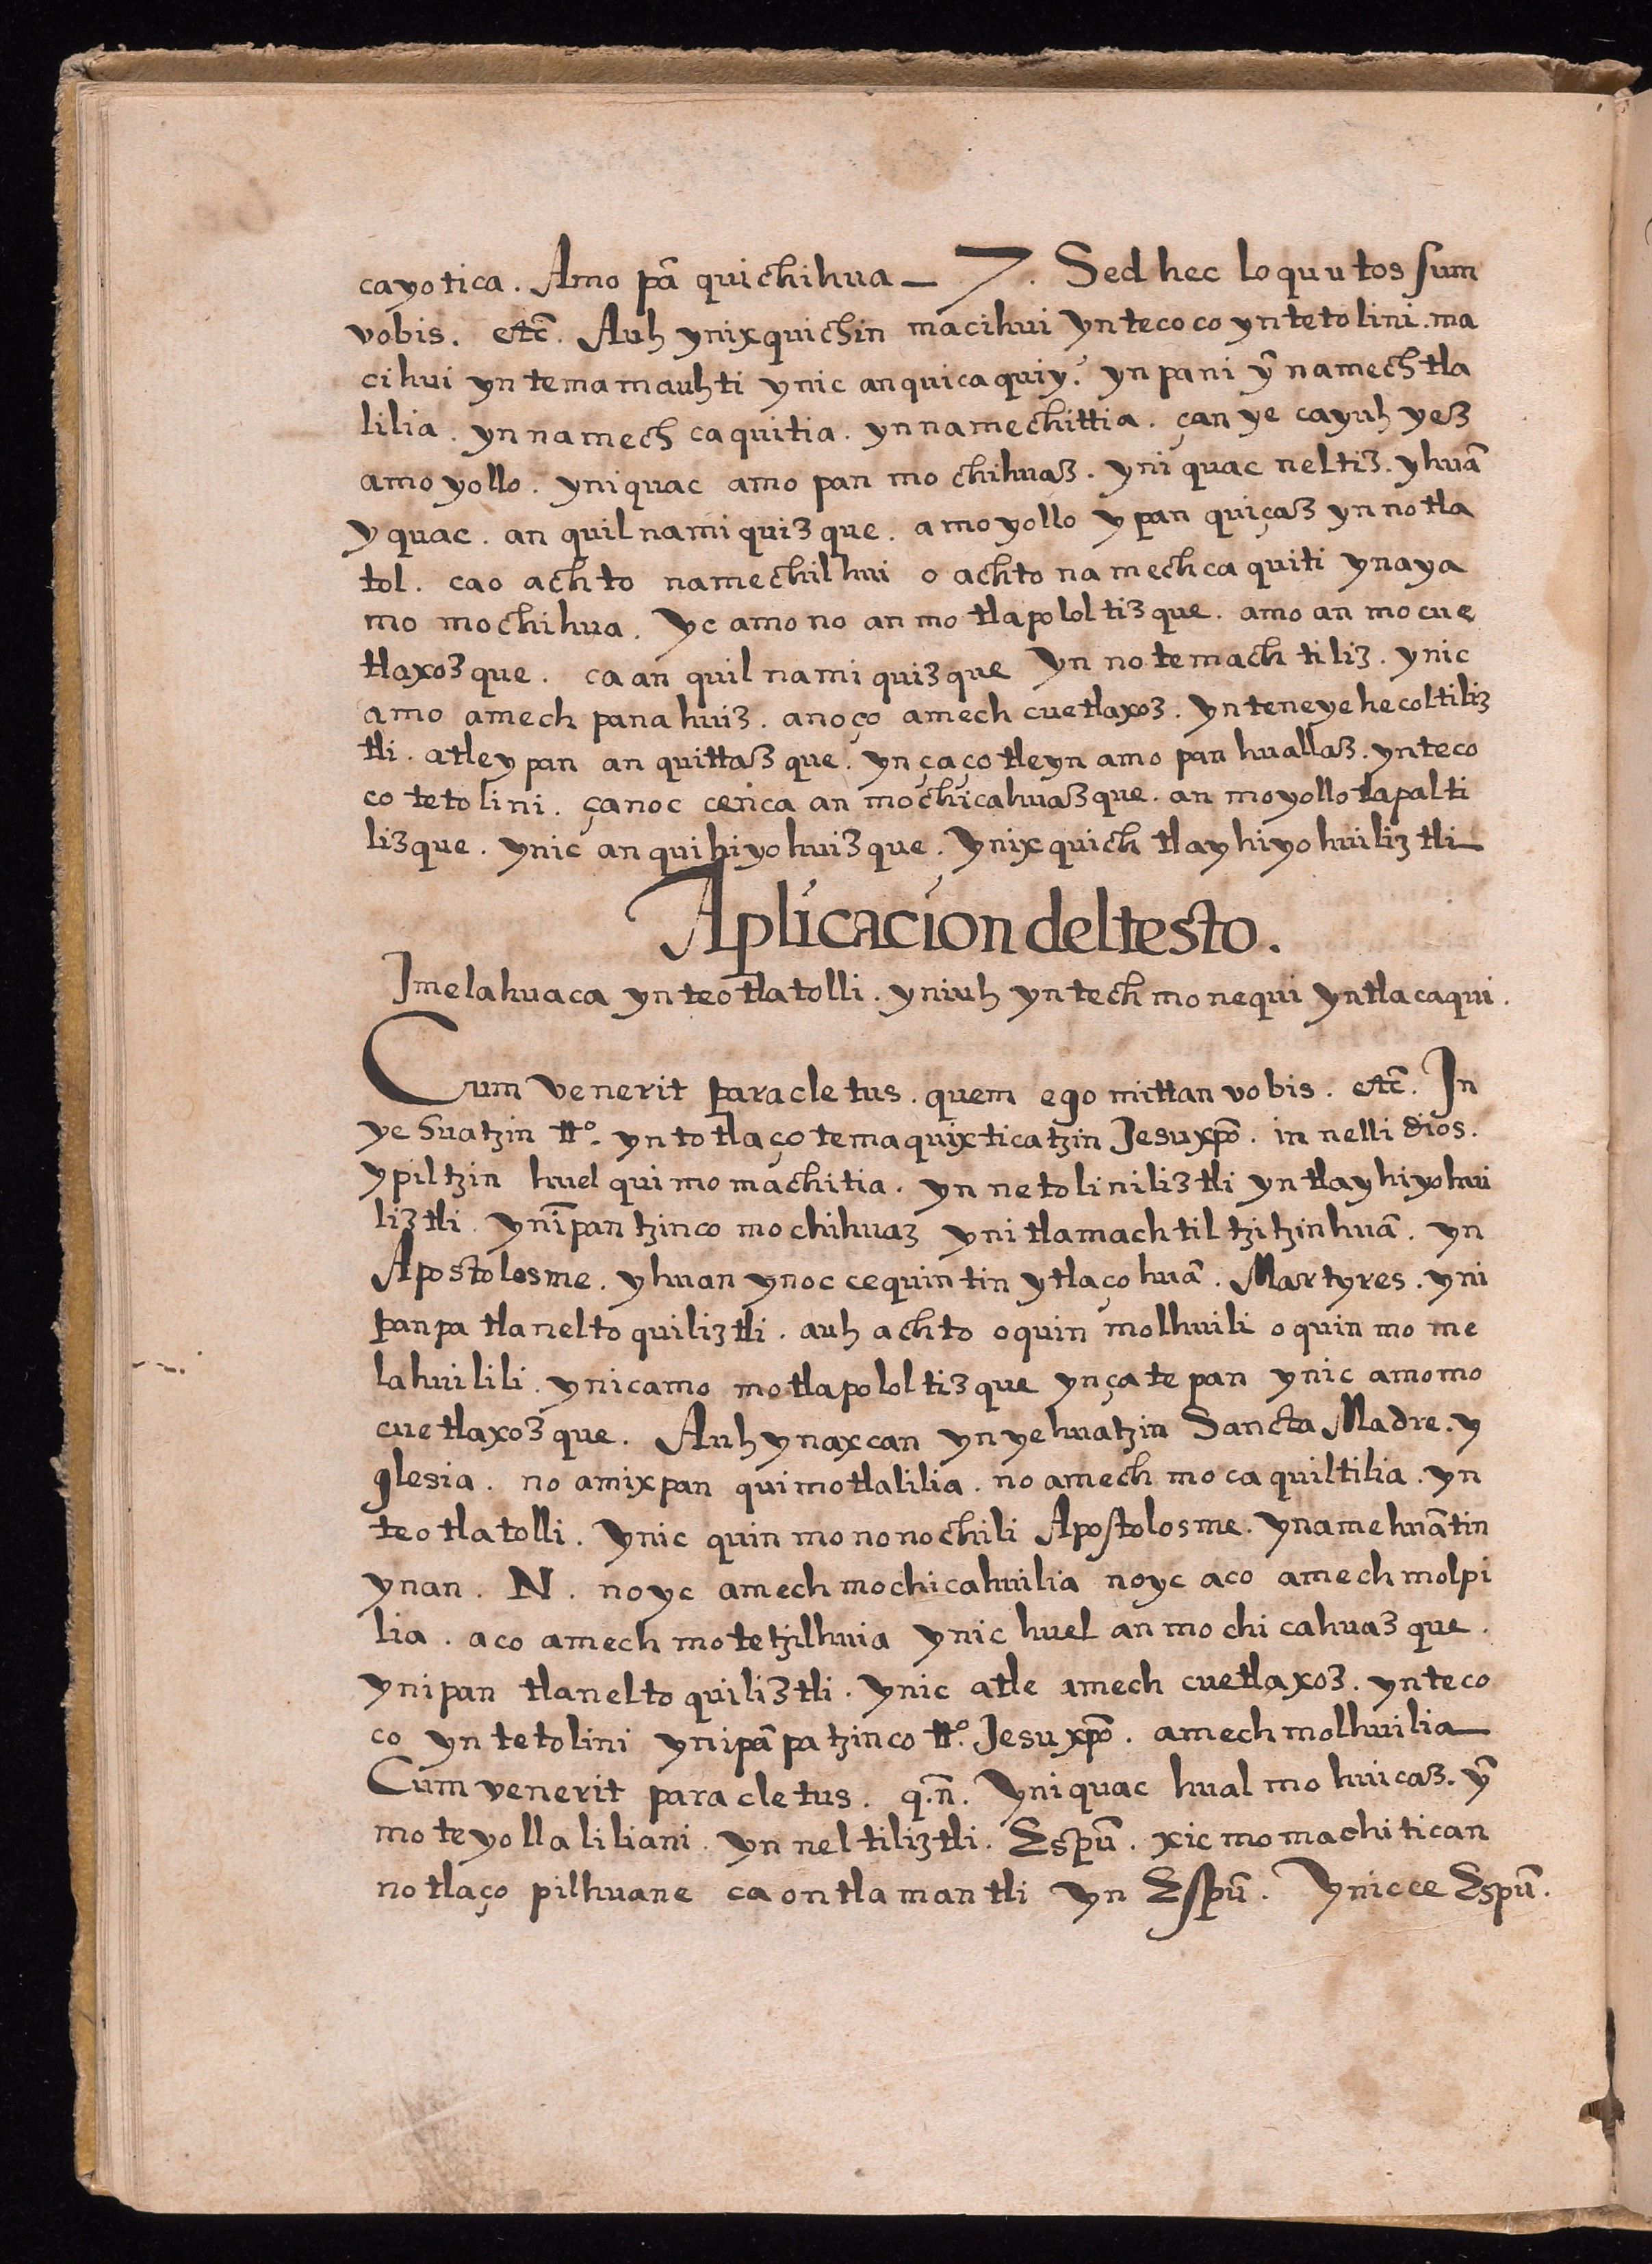 cayotica. Amo pā quichihua — 7. Sed hec loquutos sum
vobis. etc̄. Auh ynixquichin macihui yn tecoco yn tetolini. ma
cihui yn temamauhti ynic anquicaquiy. yn pani ȳ namechtla
lilia. yn namech caquitia. yn namechittia. çan ye cayuh yez
amoyollo. yniquac amo pan mochihuaz. yniquac neltiz. yhuā
yquac. an quilnamiquizque. amoyollo ypan quiçaz yn notla
tol. cao achto namechilhui o achto namechcaquiti ynaya
mo mochihua. yc amo no an motlapololtizque. amo an mocue
tlaxozque. ca an quilnamiquizque yn notemachtiliz. ynic
amo amech panahuiz. anoço amech cuetlaxoz. yn teneyehecoltiliz
tli. atleypan an quittazque. yn çaço tleyn amo pan huallaz. yn teco
co tetolini. çanoc cenca an mochicahuazque. an moyollotlapalti
lizque. ynic an quihiyohuizque. ynixquich tlayhiyohuiliztli—
Aplicacion del testo.
Imelahuaca yn teotlatolli. yniuh yn tech monequi yn tlacaqui.
Cum venerit paracletus. quem ego mittan vobis. etc̄. In
yehuatzin tto. yn totlaçotemaquixticatzin Jesuxp̄o. in nelli dios.
ypiltzin huel quimomachitia. yn netoliniliztli yn tlayhiyohui
liztli. ynīpantzinco mochihuaz ynitlamachtiltzitzinhuā. yn
Apostolosme. yhuan ynoc cequintin ytlaçohuā. Martyres. yni
panpa tlaneltoquiliztli. auh achto oquin molhuili oquin mome
lahuilili. ynicamo motlapololtizque ynçatepan ynic amomo
cuetlaxozque. Auh ynaxcan yn yehuatzin Sancta Madre. y
glesia. no amixpan quimotlalilia. no amech mocaquiltilia. yn
teotlatolli. ynic quin mononochili Apostolosme. ynamehuātin
ynan. N. noyc amech mochicahuilia noyc aco amech molpi
lia. aco amech motetzilhuia ynic huel an mochicahuazque.
ynipan tlaneltoquiliztli. ynic atle amech cuetlaxoz. yn teco
co yn tetolini ynipāpatzinco tto. Jesuxp̄o. amech molhuilia—
Cum venerit paracletus. q.n̄. yniquac hualmohuicaz. ȳ
moteyollaliliani. yn neltiliztli. Espū. xic momachitican
notlaçopilhuane ca ontlamantli yn Espū. ynicce Espū.